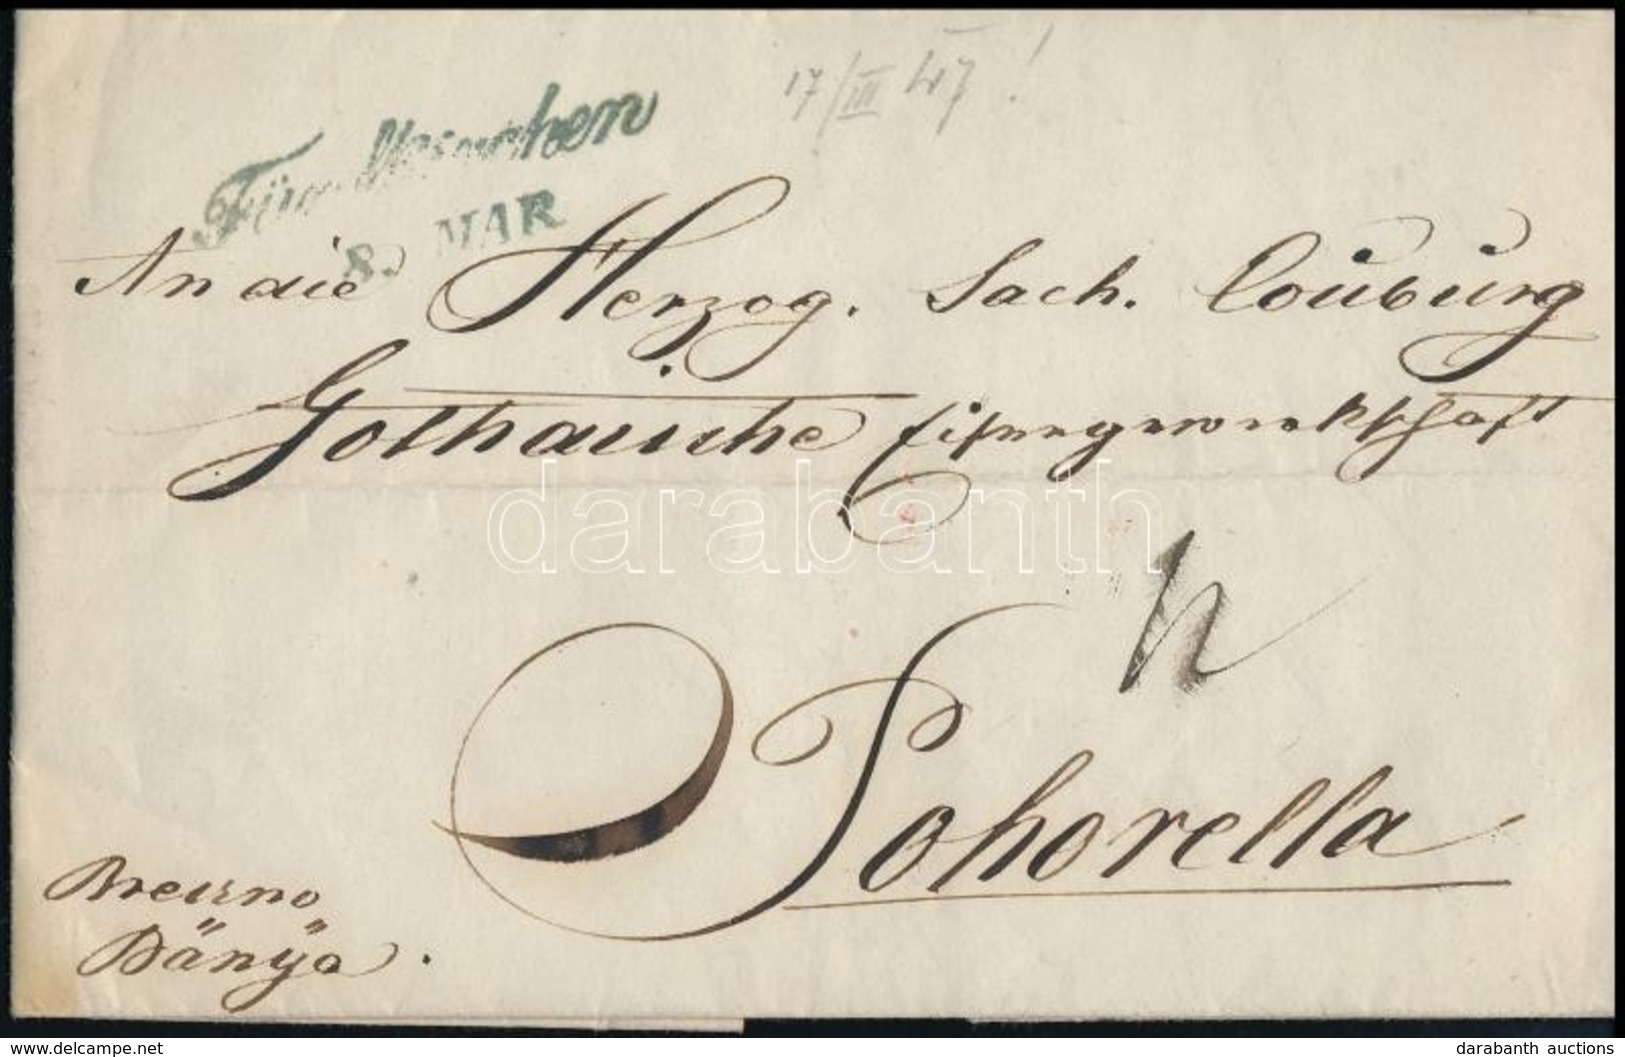 17/III 47!
Fünfkirchen
8. MAR
An die Herzog. Sach. Couburg
Gothaische Eisengewerkschaft
darabanth
Pohorella
Brezno
Bánya.
delcampe.net
darabanth auctions